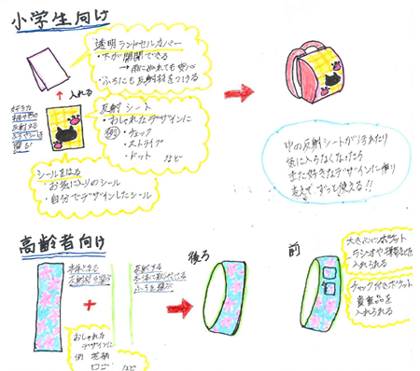 小学生向け
透明ランドセルカバー
・下が開閉できる
→雨にぬれても安心
・ふちにも反射材をつける
入れる
反射シート
・おしゃれなデザインに
例)・チェック
・ストライプ
・ドット など
シールをはる
・お気に入りのシール
・自分でデザインしたシール
中の反射シートが汚れたり
気に入らなくなったら
また好きなデザインに作り
変えてずっと使える!!
高齢者向け
後ろ
前
おしゃれな
デザインに
例 花柄
など
入れられる
チャック付きポケット
貴重品を
入れられる